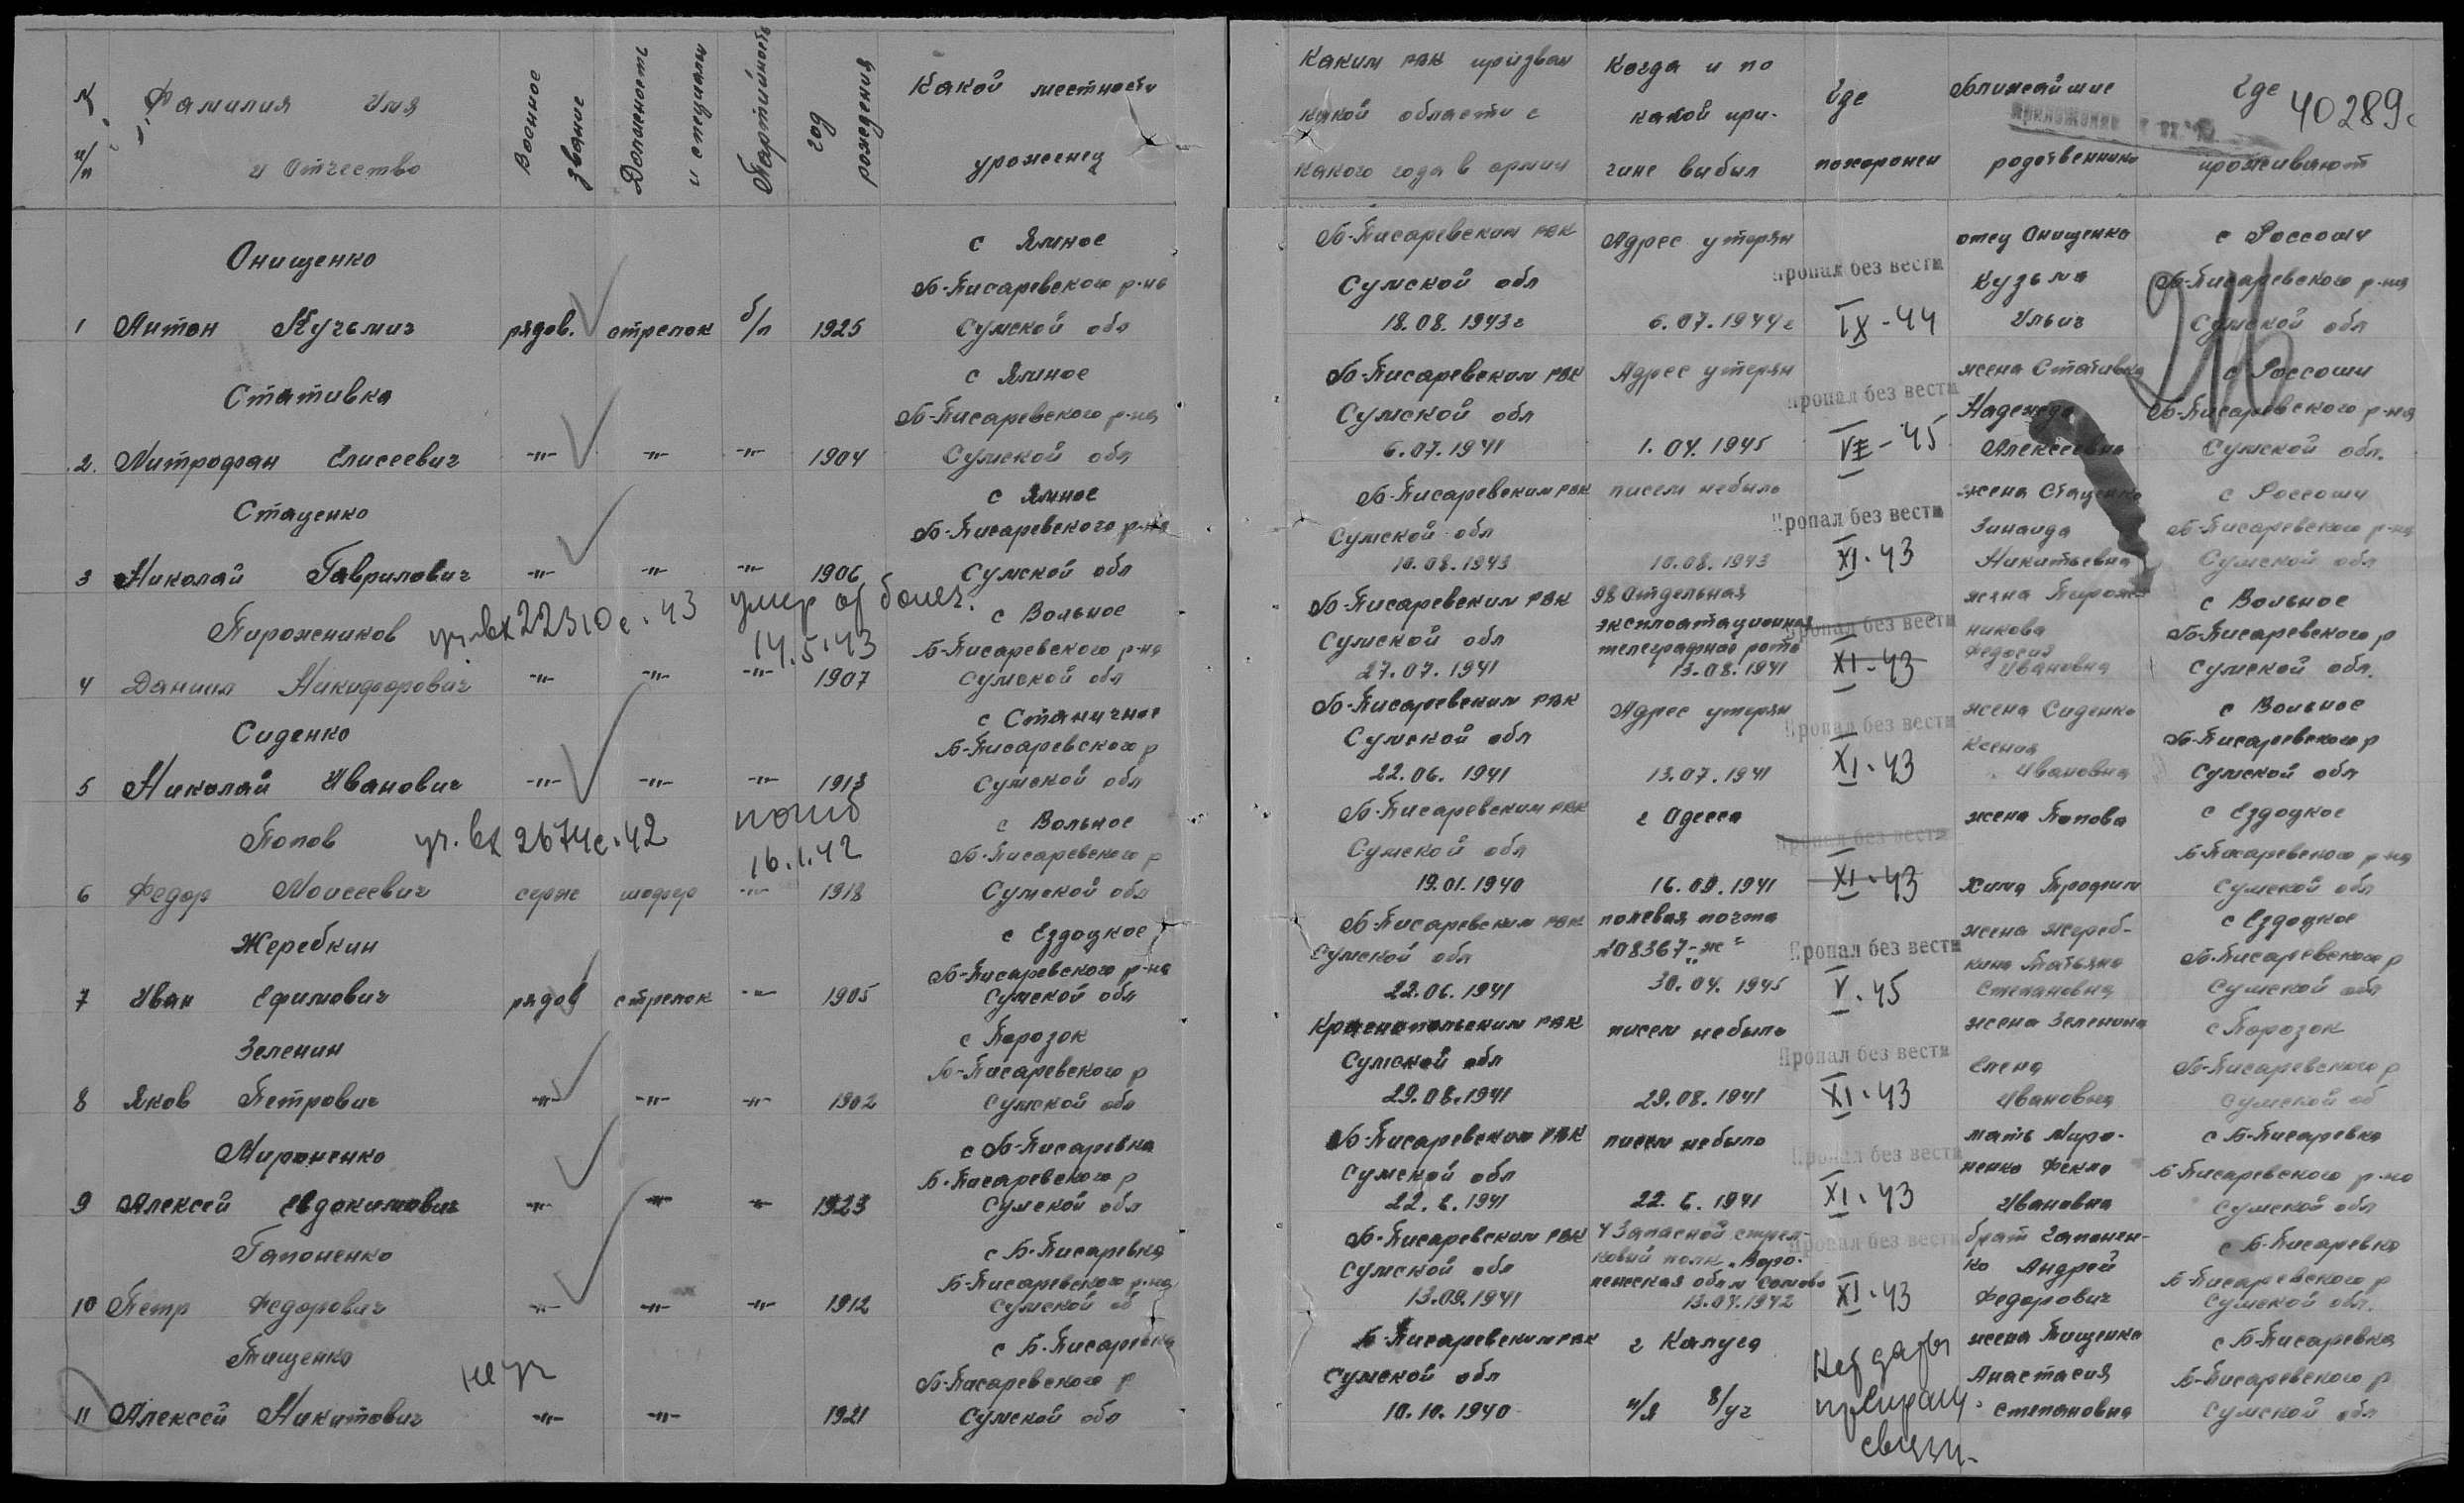 № п/п
Фамилия Имя и Отчество
Военное звание
Должность и специальн
Партийность
год рождения
Какой местности уроженец
Каким РВК призван какой области с какого года в армии
Когда и по какой причине выбыл
Где похоронен
Ближайшие родственники
Где проживают
40289с
Онищенко
с Ямное
Б-Писаревского р-на
1 Антон Кузьмич рядов. стрелок б/п 1925 Сумской обл
Б-Писаревским РВК
Сумской обл
18.08.1943г
Адрес утерян
6.07.1944г
Пропал без вести
IX-44
отец Онищенко
Кузьма
Ильич
с Россоши
Б-Писаревского р-на
Сумской обл
Стативка
с Ямное
Б-Писаревского р-на
2. Митрофан Елисеевич -"- -"- -"- 1904 Сумской обл
Б-Писаревским РВК
Сумской обл
6.07.1941
Адрес утерян
1.04.1945
Пропал без вести
-45
жена Стативка
Надежда
Алексеевна
с Россоши
Б-Писаревского р-на
Сумской обл.
Стаценко
с Ямное
Б-Писаревского р-на
3 Николай Гаврилович -"- -"- -"- 1906 Сумской обл
Б-Писаревским РВК
Сумской обл
10.08.1943
писем небыло
10.08.1943
Пропал без вести
XI-43
жена Стаценко
Зинаида
Никитьевна
с Россоши
Б-Писаревского р-на
Сумской обл
Пирожников уч.вх 22310с.43 умер от болез.
14.5.43
с Вольное
Б-Писаревского р-на
4 Даниил Никифорович -"- -"- -"- 1907 Сумской обл
Б-Писаревским РВК
Сумской обл
27.07.1941
Отдельная
эксплоатационная
телеграфная рота
13.08.1941
Пропал без вести
XI-43
жена Пирож-
никова
Федосия
Ивановна
с Вольное
Б-Писаревского р
Сумской обл.
Сиденко
с Станичное
Б-Писаревского р
5 Николай Иванович -"- -"- -"- 1913 Сумской обл
Б-Писаревским РВК
Сумской обл
22.06.1941
Адрес утерян
13.07.1941
Пропал без вести
XI-43
жена Сиденко
Ксения
Ивановна
с Вольное
Б-Писаревского р
Сумской обл
Попов уч.вх 2674с.42 погиб
16.1.42
с Вольное
Б-Писаревского р
6 Федор Моисеевич серж шофер -"- 1918 Сумской обл
Б-Писаревским РВК
Сумской обл
19.01.1940
г Одесса
16.09.1941
Пропал без вести
XI-43
жена Попова
с Ездоцкое
Б-Писаревского р-на
Сумской обл
Жеребкин
с Ездоцкое
Б-Писаревского р-на
7 Иван Ефимович рядов стрелок -"- 1905 Сумской обл
Б-Писаревским РВК
Сумской обл
22.06.1941
полевая почта
№08367-"ж"
30.04.1945
Пропал без вести
V-45
жена Жереб-
кина Татьяна
Степановна
с Ездоцкое
Б-Писаревского р
Сумской обл
Зеленин
с Порозок
Б-Писаревского р
8 Яков Петрович -"- -"- -"- 1902 Сумской обл
Краснопольским РВК
Сумской обл
29.08.1941
писем небыло
29.08.1941
Пропал без вести
XI-43
жена Зеленина
Елена
Ивановна
с Порозок
Б-Писаревского р
Сумской об
Мироненко
с Б-Писаревка
Б-Писаревского р
9 Алексей Евдокимович -"- -"- -"- 1923 Сумской обл
Б-Писаревским РВК
Сумской обл
22.6.1941
писем небыло
22.6.1941
Пропал без вести
XI-43
мать Миро-
ненко Фекла
Ивановна
с Б-Писаревка
Б-Писаревского р-на
Сумской обл
Гапоненко
с Б-Писаревка
Б-Писаревского р-на
10 Петр Федорович -"- -"- -"- 1912 Сумской об
Б-Писаревским РВК
Сумской обл
13.09.1941
4 Запасной стрел-
ковый полк. Воро-
нежская обл Сомово
13.04.1942
Пропал без вести
XI-43
брат Гапонен-
ко Андрей
Федорович
с Б-Писаревка
Б-Писаревского р
Сумской обл.
Тищенко не уч
с Б-Писаревка
Б-Писаревского р
11 Алексей Никитович -"- -"- 1921 Сумской обл
Б-Писаревским РВК
Сумской обл
10.10.1940
г Калуга
п/я 8/уч
Нет даты
прекращ.
связи
жена Тищенко
Анастасия
Степановна
с Б-Писаревка
Б-Писаревского р
Сумской обл